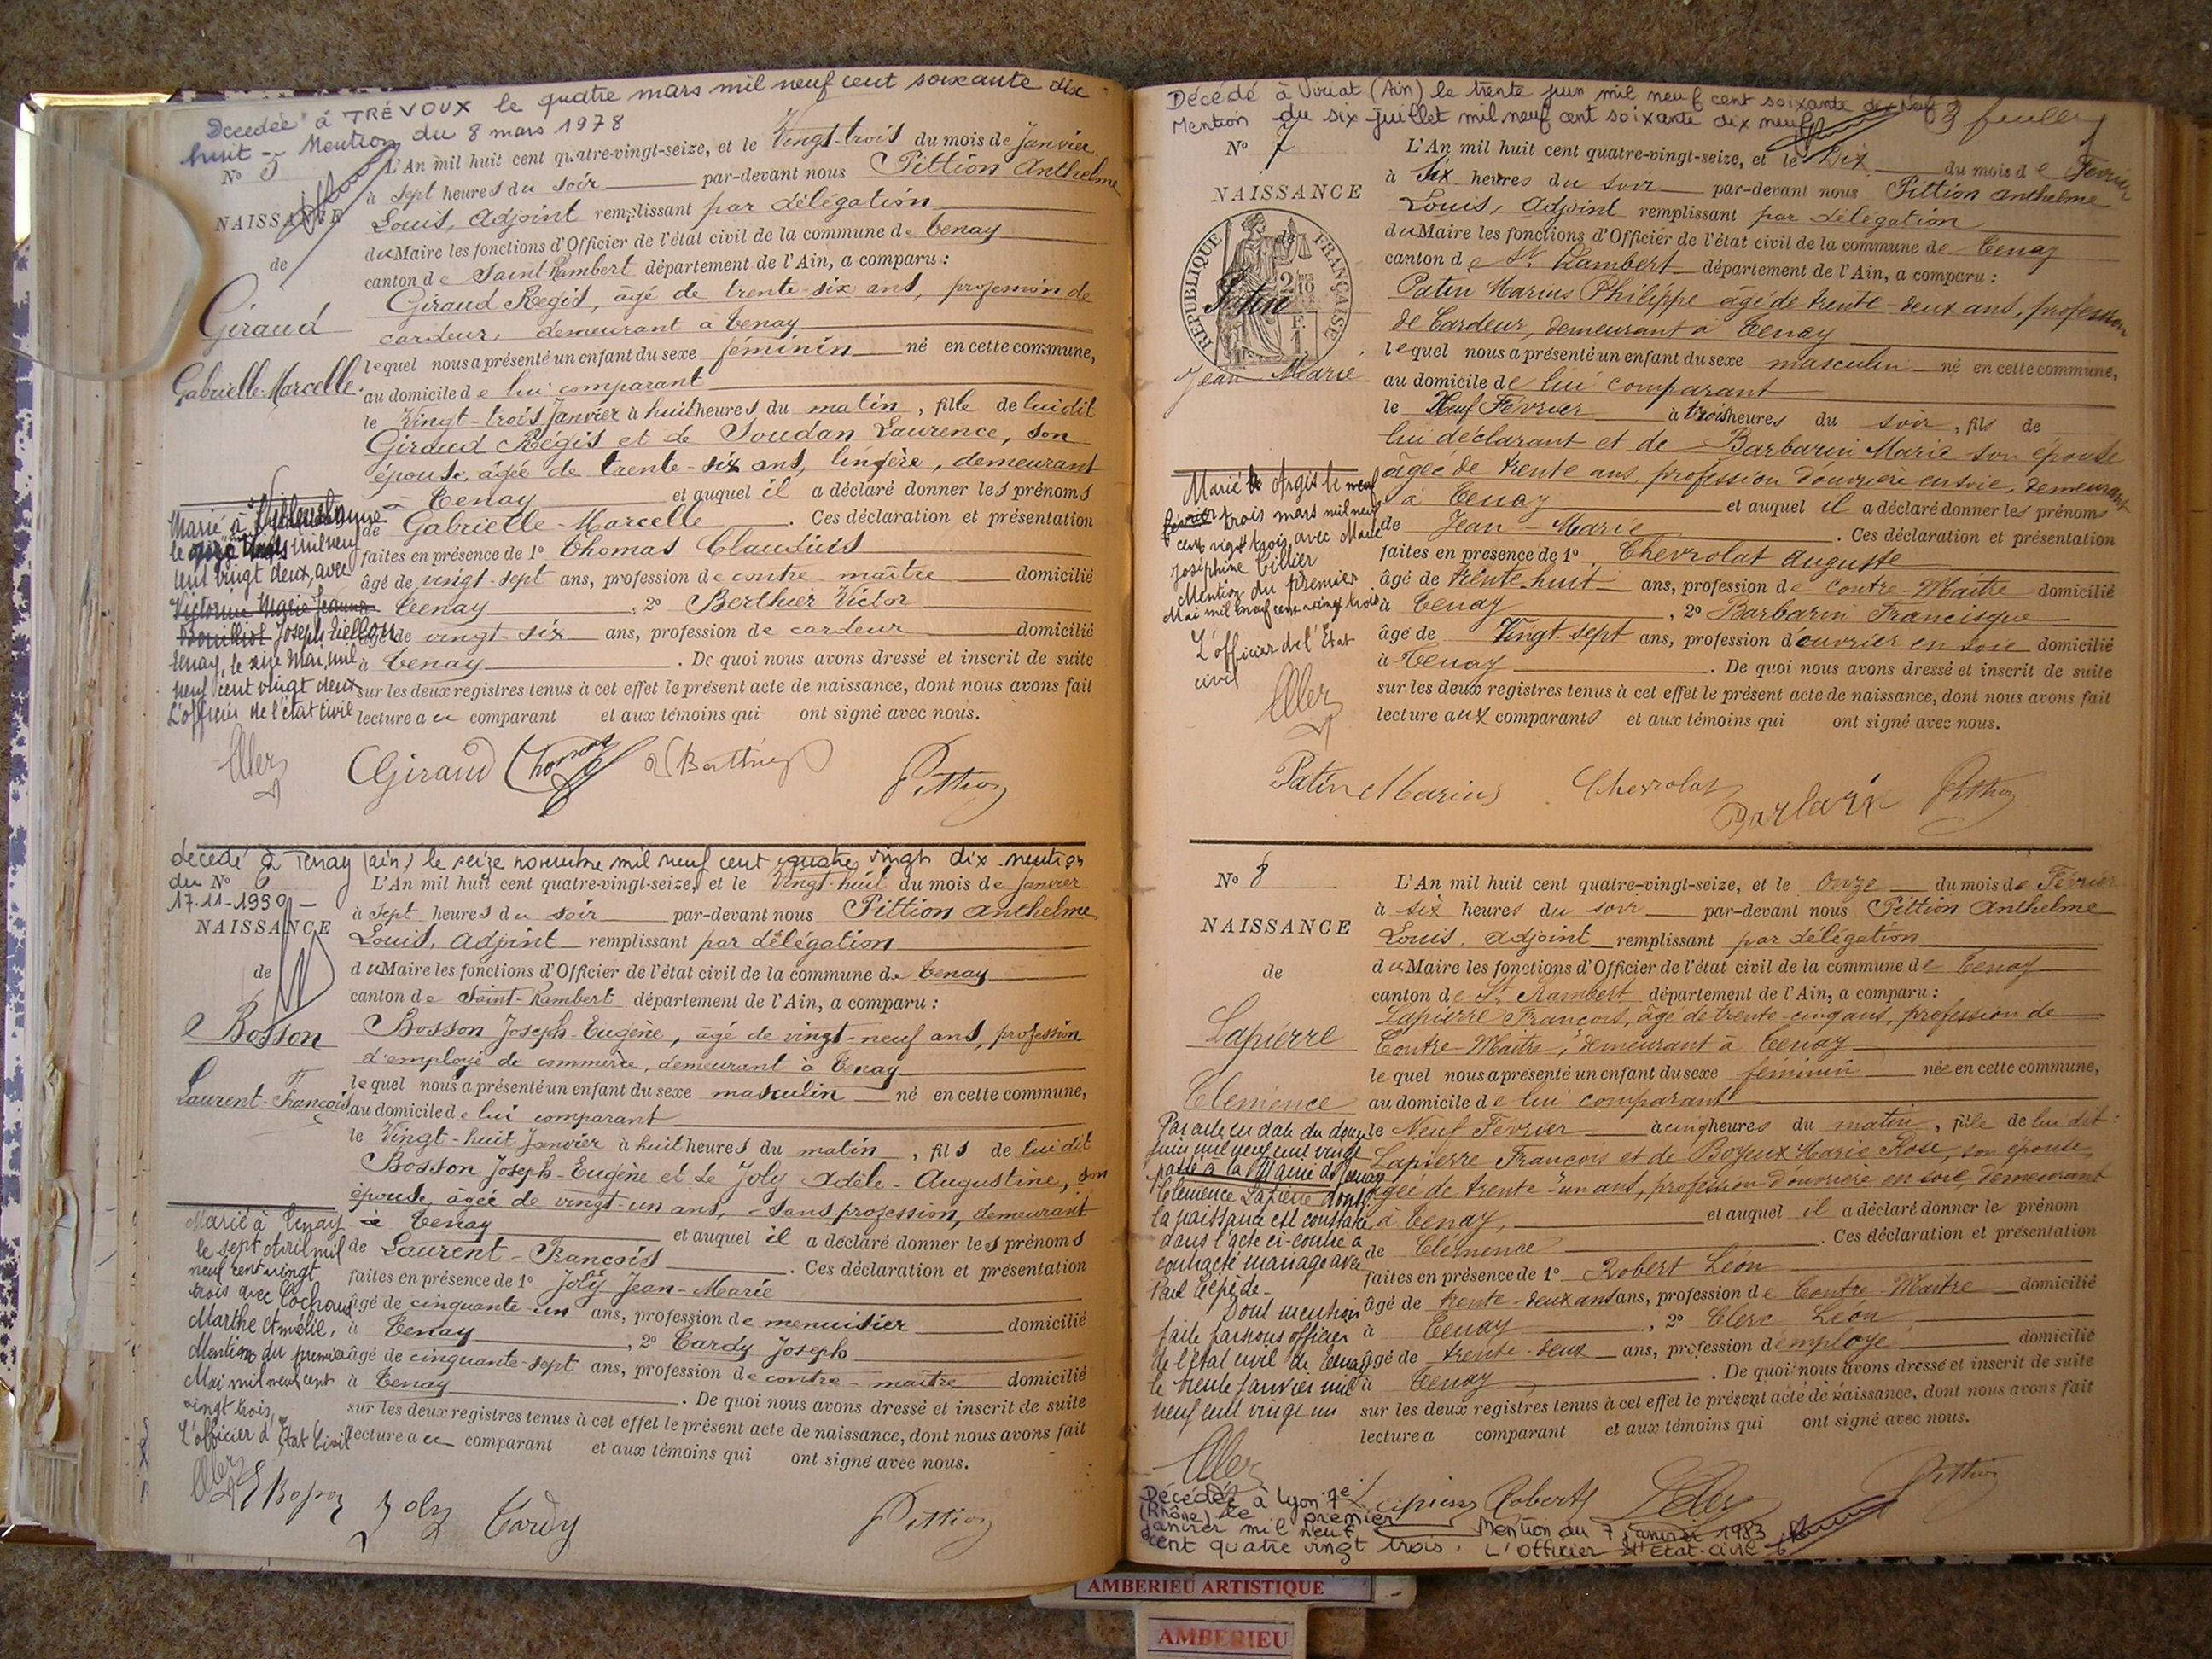 Décédée à TRÉVOUX le quatre mars mil neuf cent soixante dix
huit - Mention du 8 mars 1978
N° 5
NAISSANCE
de
Giraud
Gabrielle-Marcelle
L'An mil huit cent quatre-vingt-seize, et le Vingt-trois du mois de Janvier
à sept heures du soir par-devant nous Pittion Anthelme
Louis, Adjoint remplissant par délégation
du Maire les fonctions d'Officier de l'état civil de la commune de Tenay
canton de Saint-Rambert département de l'Ain, a comparu :
Giraud Régis, âgé de trente-six ans, profession de
cardeur, demeurant à Tenay
lequel nous a présenté un enfant du sexe féminin né en cette commune,
au domicile de lui comparant
le Vingt-trois Janvier à huit heures du matin, fille de lui dit
Giraud Régis et de Soudan Laurence, son
épouse, âgée de trente-six ans, lingère, demeurant
à Tenay et auquel il a déclaré donner les prénoms
de Gabrielle-Marcelle. Ces déclaration et présentation
faites en présence de 1° Thomas Claudius
âgé de vingt-sept ans, profession de contre-maître domicilié
à Tenay, 2° Berthier Victor
âgé de vingt-six ans, profession de cardeur domicilié
à Tenay. De quoi nous avons dressé et inscrit de suite
sur les deux registres tenus à cet effet le présent acte de naissance, dont nous avons fait
lecture au comparant et aux témoins qui ont signé avec nous.
Marié à Villeurbanne
le mil neuf
cent vingt deux, avec
Victorine Marie Jeanne
Joseph
Tenay, le Mai, mil
neuf cent vingt deux
L'officier de l'état civil
Giraud Thomas Berthier Pittion
décédé à Tenay (ain) le seize novembre mil neuf cent quatre vingt dix - mention
du 17-11-1990 -
N° 6
NAISSANCE
de
Bosson
Laurent-François
L'An mil huit cent quatre-vingt-seize, et le Vingt-huit du mois de Janvier
à Sept heures du soir par-devant nous Pittion Anthelme
Louis, Adjoint remplissant par délégation
du Maire les fonctions d'Officier de l'état civil de la commune de Tenay
canton de Saint-Rambert département de l'Ain, a comparu :
Bosson Joseph-Eugène, âgé de vingt-neuf ans, profession
d'employé de commerce, demeurant à Tenay
lequel nous a présenté un enfant du sexe masculin né en cette commune,
au domicile de lui comparant
le Vingt-huit Janvier à huit heures du matin, fils de lui dit
Bosson Joseph-Eugène et de Joly Adèle-Augustine, son
épouse, âgée de vingt-un ans, sans profession, demeurant
à Tenay et auquel il a déclaré donner les prénoms
de Laurent-François. Ces déclaration et présentation
faites en présence de 1° Joly Jean-Marie
âgé de cinquante-un ans, profession de menuisier domicilié
à Tenay, 2° Tardy Joseph
âgé de cinquante-sept ans, profession de contre-maître domicilié
à Tenay. De quoi nous avons dressé et inscrit de suite
sur les deux registres tenus à cet effet le présent acte de naissance, dont nous avons fait
lecture au comparant et aux témoins qui ont signé avec nous.
Marié à Tenay
le sept Avril mil
neuf cent vingt
trois avec
Marthe Amélie,
Mention du premier
Mai mil neuf cent
vingt trois,
L'officier d'Etat Civil
Joly Tardy Pittion
Décédé à Viriat (Ain) le trente juin mil neuf cent soixante dix Neuf
Mention du six juillet mil neuf cent soixante dix neuf
3
N° 7
NAISSANCE
de
RÉPUBLIQUE FRANÇAISE
Patin
Jean-Marie
L'An mil huit cent quatre-vingt-seize, et le Dix du mois de Février
à Six heures du soir par-devant nous Pittion Anthelme
Louis, Adjoint remplissant par délégation
du Maire les fonctions d'Officier de l'état civil de la commune de Tenay
canton de St Rambert département de l'Ain, a comparu :
Patin Marius Philippe âgé de trente-deux ans, profession
de Cardeur, demeurant à Tenay
lequel nous a présenté un enfant du sexe masculin né en cette commune,
au domicile de lui comparant
le Neuf Février à trois heures du soir, fils de
lui déclarant et de Barbarin Marie son épouse
âgée de trente ans, profession d'ouvrière en soie, demeurant
à Tenay et auquel il a déclaré donner les prénoms
de Jean-Marie. Ces déclaration et présentation
faites en présence de 1° Chevrolat Auguste
âgé de trente-huit ans, profession de Contre-Maître domicilié
à Tenay, 2° Barbarin Francisque
âgé de Vingt-sept ans, profession d'ouvrier en soie domicilié
à Tenay. De quoi nous avons dressé et inscrit de suite
sur les deux registres tenus à cet effet le présent acte de naissance, dont nous avons fait
lecture aux comparants et aux témoins qui ont signé avec nous.
Marié à Argis le neuf
février trois mars mil neuf
cent vingt trois, avec Marie
Joséphine Tillier
Mention du premier
Mai mil neuf cent vingt trois
L'officier de l'Etat
civil
Patin Marius Chevrolat Barbarin Pittion
N° 8
NAISSANCE
de
Lapierre
Clémence
L'An mil huit cent quatre-vingt-seize, et le Onze du mois de Février
à six heures du soir par-devant nous Pittion Anthelme
Louis, Adjoint remplissant par délégation
du Maire les fonctions d'Officier de l'état civil de la commune de Tenay
canton de St Rambert département de l'Ain, a comparu :
Lapierre François, âgé de trente-cinq ans, profession de
Contre-Maître, demeurant à Tenay
lequel nous a présenté un enfant du sexe féminin née en cette commune,
au domicile de lui comparant
le Neuf Février à cinq heures du matin, fille de lui dit
Lapierre François et de Boyeux Marie Rose, son épouse,
âgée de trente-un ans, profession d'ouvrière en soie, demeurant
à Tenay, et auquel il a déclaré donner le prénom
de Clémence. Ces déclaration et présentation
faites en présence de 1° Robert Léon
âgé de trente-deux ans ans, profession de Contre-Maître domicilié
à Tenay, 2° Clerc Léon
âgé de trente-deux ans, profession d'employé domicilié
à Tenay. De quoi nous avons dressé et inscrit de suite
sur les deux registres tenus à cet effet le présent acte de naissance, dont nous avons fait
lecture a comparant et aux témoins qui ont signé avec nous.
Par acte en date du douze
juin mil neuf cent vingt
passé à la Mairie de Tenay
Clémence Lapierre dont
la naissance est constatée
dans l'acte ci-contre a
contracté mariage avec
Paul
Dont mention
faite par nous officier
de l'état civil de Tenay
le trente janvier mil
neuf cent vingt un
Robert Pittion
Décédée à Lyon 7e
(Rhône) le premier
janvier mil neuf
cent quatre vingt trois.
Mention du 7 janvier 1983
L'Officier d'Etat-Civil
AMBERIEU ARTISTIQUE
AMBERIEU